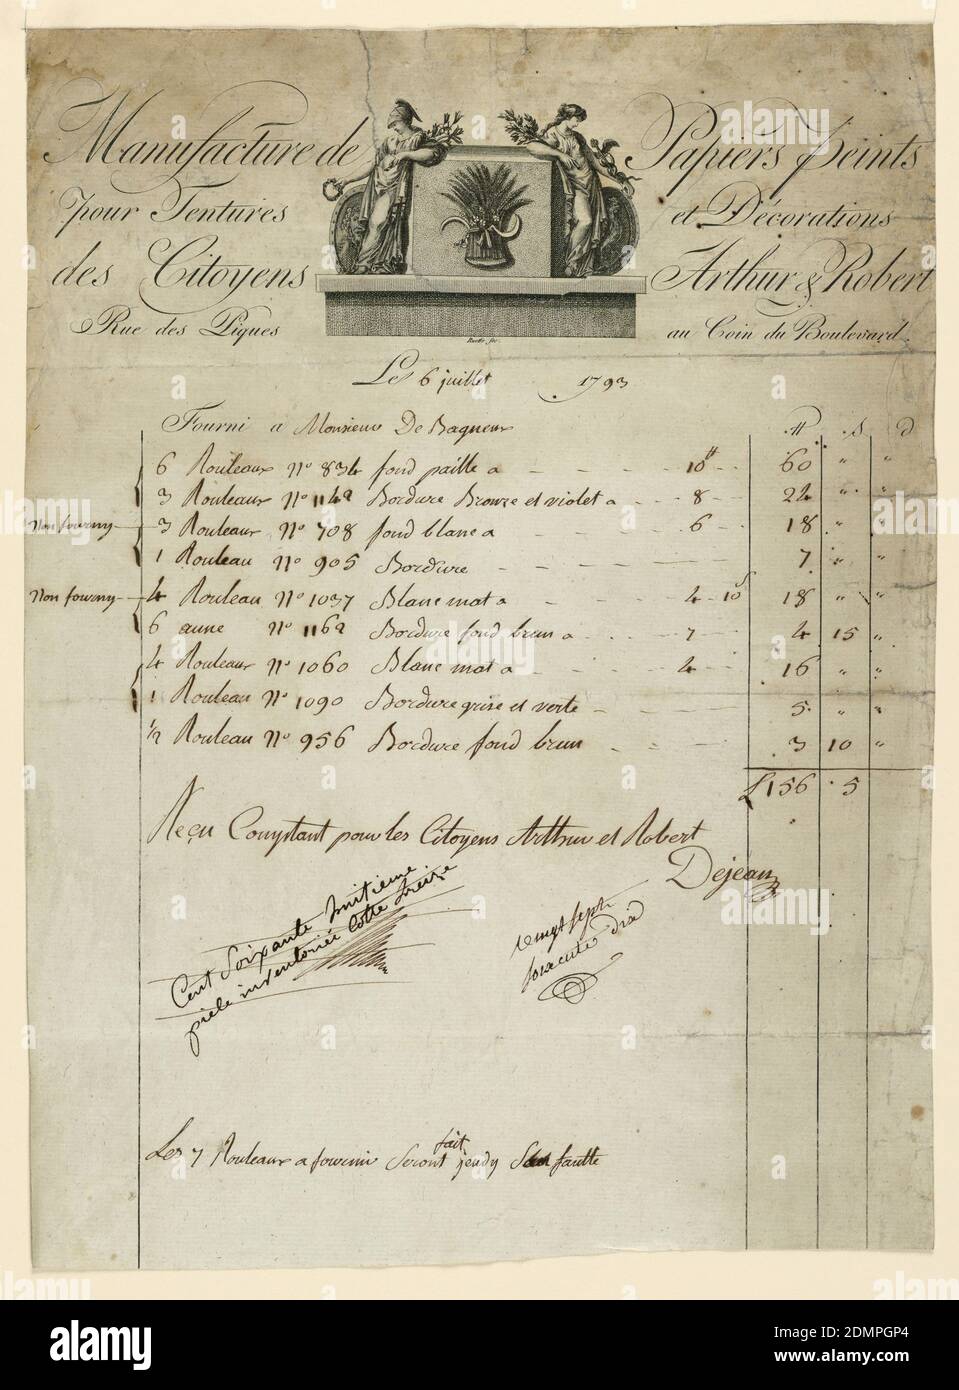 Manufacture de Papiers Peints
pour Tentures et Décorations
des Citoyens Arthur & Robert
Rue des Piques au Coin du Boulevard.
Le 6 juillet 1793
Fourni a Monsieur De Bagneux ₶ S d
6 Rouleaux No 834 fond paille a - - - - 10₶ - - 60 " "
3 Rouleaux No 1142 Bordure Bronze et violet a - - - 8 - - 24 " "
Non fourny 3 Rouleaux No 708 fond blanc a - - - - 6 - - 18 " "
1 Rouleau No 905 Bordure - - - - 7 " "
Non fourny 4 Rouleau No 1037 Blanc mat a - - - - 4 - 10s 18 " "
6 aune No 1162 Bordure fond brun a - - - 7 - - 4 15 "
4 Rouleaux No 1060 Blanc mat a - - - - 4 - - 16 " "
1 Rouleau No 1090 Bordure grise et verte - - - - 5 " "
1/2 Rouleau No 956 Bordure fond brun - - - - 3 10 "
£ 156 . 5
Reçu Comptant pour les Citoyens Arthur et Robert
Dejean
Cent Soixante huitieme
piece inventoriée Cotte treize
vingt sept
Les 7 Rouleaux a fournir Seront fait jeudy faulte
alamy
Image ID: 2DMPGP4
www.alamy.com